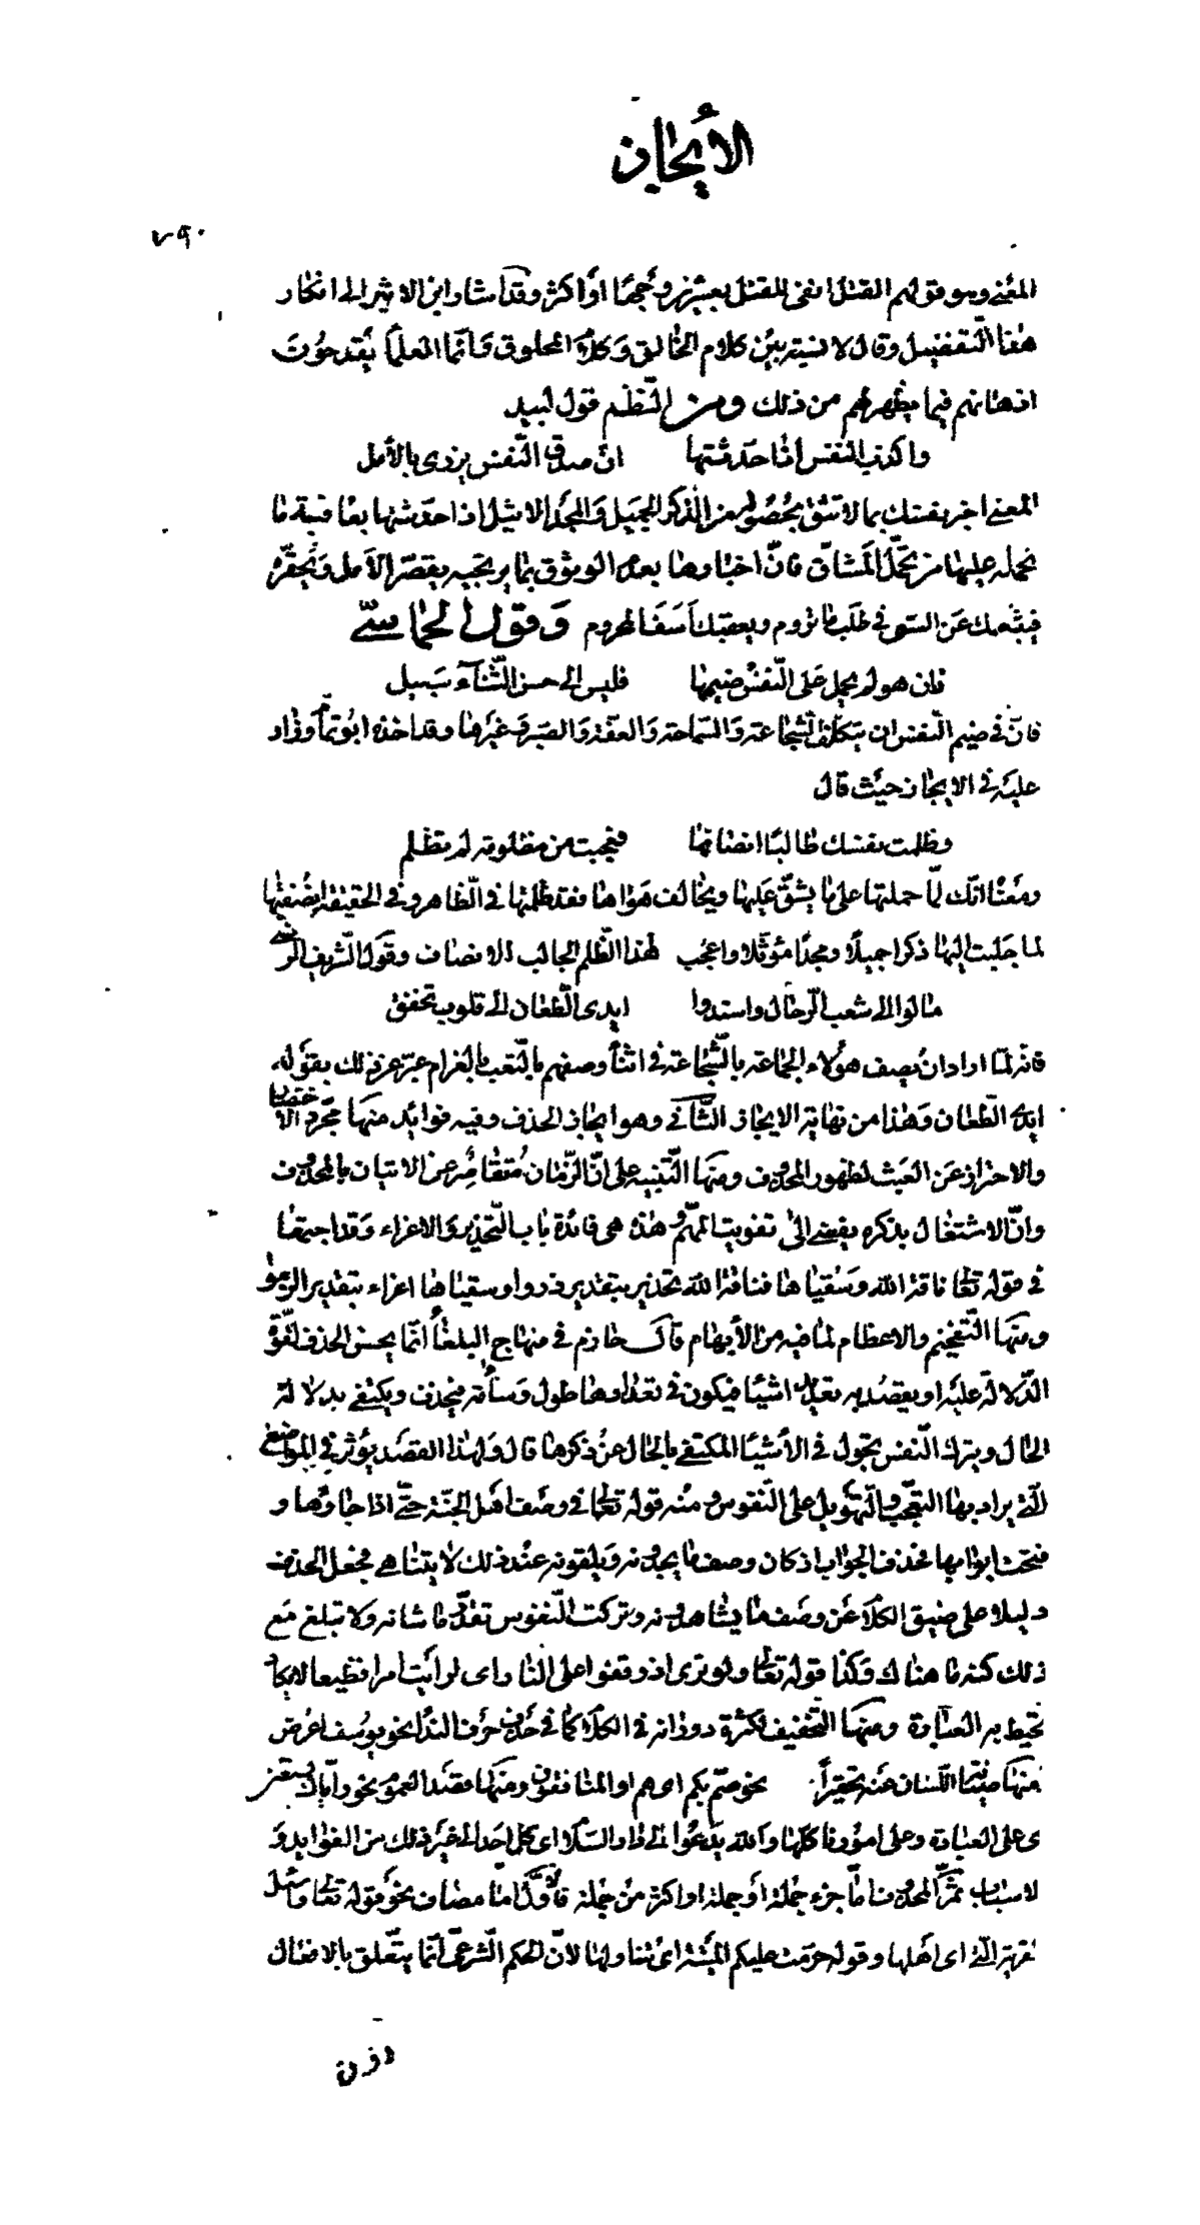 الأيجاز
٧٩٠
المعنى وهو قولهم القتل انفى للقتل بعشرين وجها او اكثر وقد اشار ابن الاثير الى انكار
هذا التفضيل وقال لا نسبة بين كلام الخالق وكلام المخلوق وانما العلماء يقدحون
اذهانهم فيما يظهر لهم من ذلك ومن النظم قول لبيد
واكذب النفس اذا حدثتها ان صدق النفس يزدى بالأمل
المعنى اخبر نفسك بما لا تثق بحصوله من الذكر الجميل والمجد الاثيل اذا حدثتها بعاقبة ما
تحمله عليها من تحمل المشاق فان اخبارها بعدم الوثوق بما يرتجيه يقصر الامل ويحقره
فيثبطك عن السعى فى طلب ما تروم ويعقبك اسف المحروم وقول الحماسى
فان هو لم يحمل على النفس ضيمها فليس الى حسن الثناء سبيل
فان فى ضيم النفس ان يتكلف الشجاعة والسماحة والعفة والصبر وغيرها وقد اخذه ابو تمام وزاد
عليه فى الايجاز حيث قال
وظلمت نفسك طالبا انصافها فعجبت من مظلومة لم تظلم
ومعناه انك لما حملتها على ما يشق عليها ويخالف هواها فقد ظلمتها فى الظاهر وفى الحقيقة انصفتها
لما جلبت اليها ذكرا جميلا ومجدا مؤثلا واعجب لهذا الظلم الجالب للانصاف وقول الشريف الرضى
مالوا الى شعب الرحال واسندوا ايدى الطعان الى قلوب تخفق
فانه لما اراد ان يصف هؤلاء الجماعة بالشجاعة فى اثناء وصفهم بالتعب بالغرام عبر عن ذلك بقوله
ايدى الطعان وهذا من نهاية الايجاز الثانى وهو ايجاز الحذف وفيه فوائد منها مجرد الاختصار
والاحتراز عن العبث لظهور المحذوف ومنها التنبيه على ان الزمان متقاصر عن الاتيان بالمحذوف
وان الاشتغال بذكره يفضى الى تفويت المهم وهذه هى فائدة باب التحذير والاغراء وقد اجتمعا
فى قوله تعالى ناقة الله وسقياها فناقة الله تحذير بتقدير ذروا وسقياها اغراء بتقدير الزموا
ومنها التفخيم والاعظام لما فيه من الأبهام قال حازم فى منهاج البلغاء انما يحسن الحذف لقوة
الدلالة عليه او يقصد به تعديد اشياء فيكون فى تعدادها طول وسآمة فيحذف ويكتفى بدلالة
الحال ويترك النفس تجول فى الأشياء المكتفى بالحال عن ذكرها قال ولهذا القصد يؤثر فى المواضع
التى يراد بها التعجب والتهويل على النفوس ومنه قوله تعالى فى وصف اهل الجنة حتى اذا جاؤها و
فتحت ابوابها فحذف الجواب اذ كان وصف ما يجدونه ويلقونه عند ذلك لا يتناهى فجعل الحذف
دليلا على ضيق الكلام عن وصف ما يشاهدونه وتركت النفوس تقدر ما شاءته ولا تبلغ مع
ذلك كنه ما هنالك وكذا قوله تعالى ولو ترى اذ وقفوا على النار اى لرأيت امرا فظيعا لا يكاد
تحيط به العبارة ومنها التخفيف لكثرة دورانه فى الكلام كما فى حذف حرف النداء نحو يوسف اعرض
منها صيانة اللسان عنه تحقيرا نحو صم بكم اى هم او المنافقون ومنها قصد العموم نحو واياك نستعين
اى على العبادة وعلى امورنا كلها والله يدعوا الى دار السلام اى كل احد الى غير ذلك من الفوايد و
الاسباب ثم المحذوف اما جزء جملة او جملة او اكثر من جملة فالاول اما مضاف نحو قوله تعالى واسئل
القرية التى اى اهلها وقوله حرمت عليكم الميتة اى تناولها لان الحكم الشرعى انما يتعلق بالافعال
دون